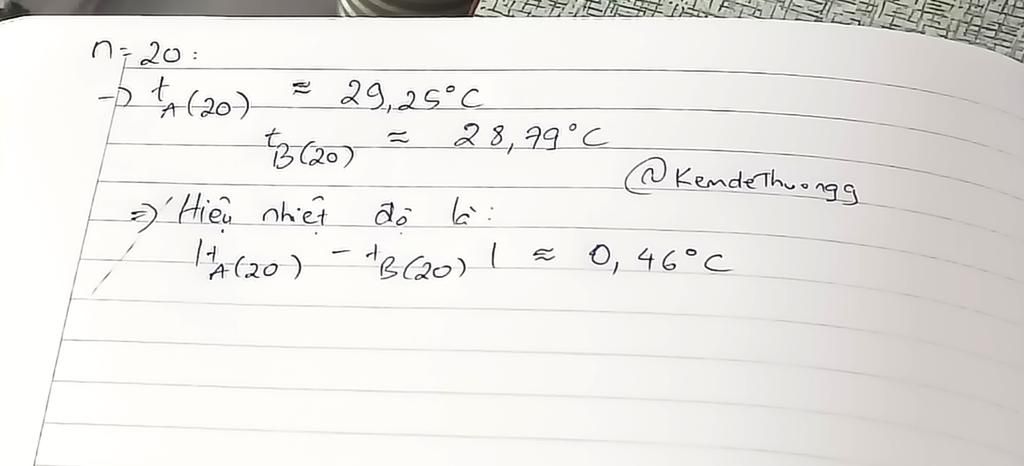 n = 20 :
→ tA(20) ≈ 29,25°C
tB(20) ≈ 28,79°C
@KemdeThuongg
⇒ Hiệu nhiệt độ là:
|tA(20) - tB(20)| ≈ 0,46°C